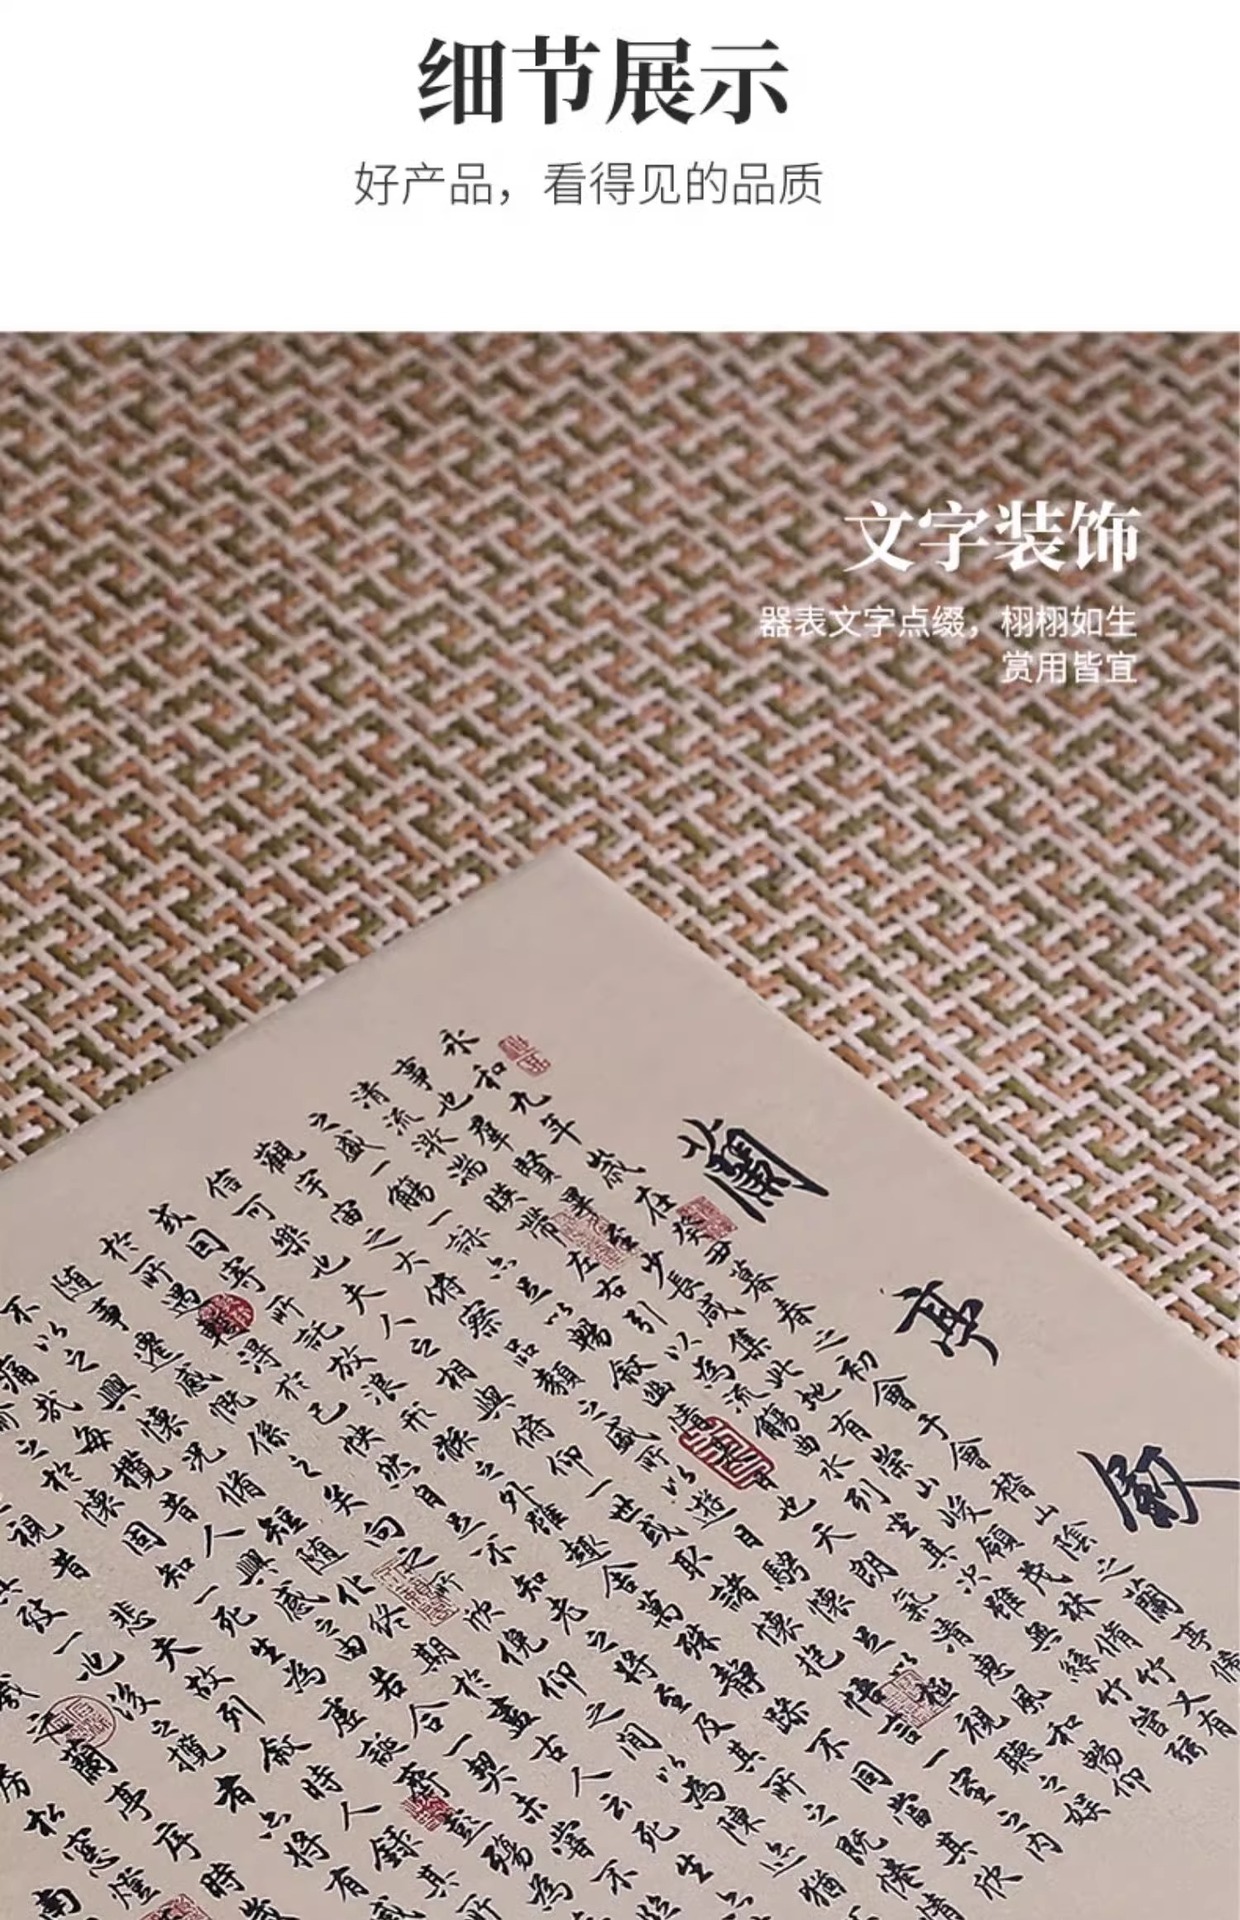 细节展示
好产品，看得见的品质
文字装饰
器表文字点缀，栩栩如生
赏用皆宜
蘭亭敘
永和九年歲在癸丑暮春之初會于會稽山陰之蘭亭脩
事也羣賢畢至少長咸集此地有崇山峻領茂林脩竹又有
清流激湍暎帶左右引以為流觴曲水列坐其次雖無絲竹管絃
之盛一觴一詠亦足以暢敘幽情是日也天朗氣清惠風和暢仰
觀宇宙之大俯察品類之盛所以遊目騁懷足以極視聽之娛
信可樂也夫人之相與俯仰一世或取諸懷抱悟言一室之內
或因寄所託放浪形骸之外雖趣舍萬殊靜躁不同當其欣
於所遇蹔得於己快然自足不知老之將至及其所之既倦情
隨事遷感慨係之矣向之所欣俛仰之間以為陳迹猶
不以之興懷況脩短隨化終期於盡古人云死生亦
痛哉每攬昔人興感之由若合一契未嘗不臨
之於懷固知一死生為虛誕齊彭殤為
視昔悲夫故列敘時人錄其所
致一也後之攬者亦將有感
蘭亭序時歲
松窓燈